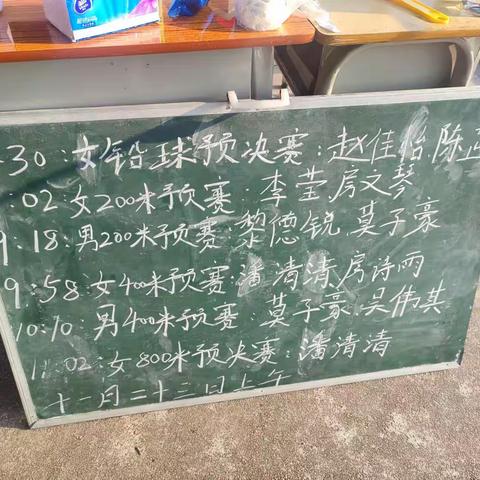 30:女铅球预决赛:赵佳怡 陈
:02:女200米预赛:李莹,房文琴
9:18:男200米预赛:黎德锐,莫子豪
9:58:女400米预赛:潘清清,房诗雨
10:10:男400米预赛:莫子豪,吴伟其
11:02:女800米预决赛:潘清清
十一月二十三日上午